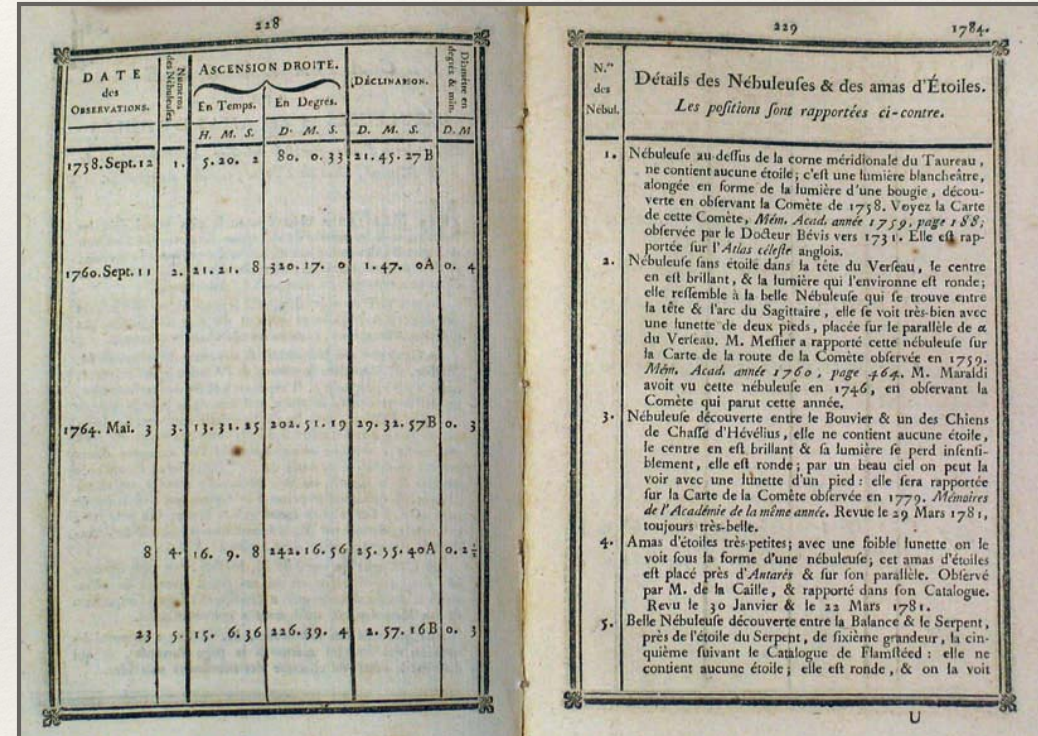 228
DATE
des
OBSERVATIONS.
Numeros
des Nébuleuses
ASCENSION DROITE.
En Temps.
En Degrés.
DÉCLINAISON.
Diamètre en
degrés & min.
H. M. S.
D. M. S.
D. M. S.
D. M
1758. Sept. 12 1. 5. 20. 2 80. 0. 33 21. 45. 27 B
1760. Sept. 11 2. 21. 21. 8 320. 17. 0 1. 47. 0 A 0. 4
1764. Mai. 3 3. 13. 31. 25 202. 51. 19 29. 32. 57 B 0. 3
8 4. 16. 9. 8 242. 16. 56 25. 55. 40 A 0. 2½
23 5. 15. 6. 36 226. 39. 4 2. 57. 16 B 0. 3
229
1784.
N.ᵒˢ
des
Nébul.
Détails des Nébuleuſes & des amas d'Étoiles.
Les poſitions ſont rapportées ci-contre.
1. Nébuleuſe au deſſus de la corne méridionale du Taureau,
ne contient aucune étoile; c'eſt une lumière blancheâtre,
alongée en forme de la lumière d'une bougie, décou-
verte en obſervant la Comète de 1758. Voyez la Carte
de cette Comète, Mém. Acad. année 1759, page 188;
obſervée par le Docteur Bévis vers 1731. Elle eſt rap-
portée ſur l'Atlas céleſte anglois.
2. Nébuleuſe ſans étoile dans la tête du Verſeau, le centre
en eſt brillant, & la lumière qui l'environne eſt ronde;
elle reſſemble à la belle Nébuleuſe qui ſe trouve entre
la tête & l'arc du Sagittaire, elle ſe voit très-bien avec
une lunette de deux pieds, placée ſur le parallèle de α
du Verſeau. M. Meſſier a rapporté cette nébuleuſe ſur
la Carte de la route de la Comète obſervée en 1759.
Mém. Acad. année 1760, page 464. M. Maraldi
avoit vu cette nébuleuſe en 1746, en obſervant la
Comète qui parut cette année.
3. Nébuleuſe découverte entre le Bouvier & un des Chiens
de Chaſſe d'Hévélius, elle ne contient aucune étoile,
le centre en eſt brillant & ſa lumière ſe perd inſenſi-
blement, elle eſt ronde; par un beau ciel on peut la
voir avec une lunette d'un pied: elle ſera rapportée
ſur la Carte de la Comète obſervée en 1779. Mémoires
de l'Académie de la même année. Revue le 29 Mars 1781,
toujours très-belle.
4. Amas d'étoiles très-petites; avec une foible lunette on le
voit ſous la forme d'une nébuleuſe; cet amas d'étoiles
eſt placé près d'Antarès & ſur ſon parallèle. Obſervé
par M. de la Caille, & rapporté dans ſon Catalogue.
Revu le 30 Janvier & le 22 Mars 1781.
5. Belle Nébuleuſe découverte entre la Balance & le Serpent,
près de l'étoile du Serpent, de ſixième grandeur, la cin-
quième ſuivant le Catalogue de Flamſtéed: elle ne
contient aucune étoile; elle eſt ronde, & on la voit
U